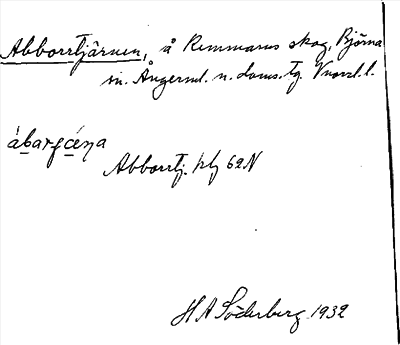 Abborrtjärnen, å Remmarns skog, Björna
sn. Ångerml. n. doms. tg. Vnorrl. l.
åbarɟcéṇa
Abborrtj. ktj 62N
H A Söderberg 1932